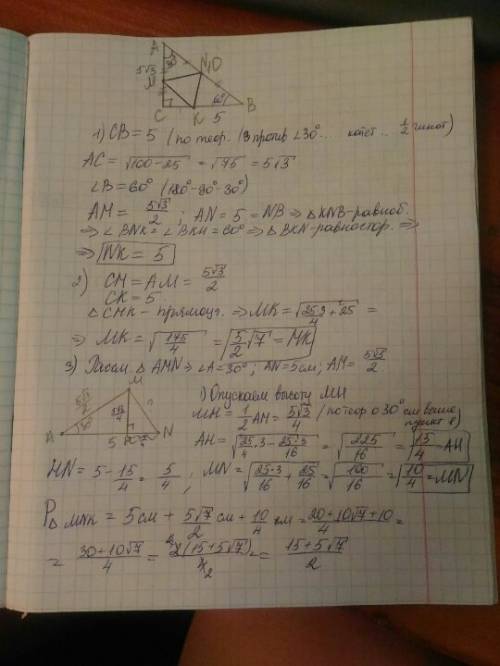 A
30°
5√3
M
N
10
C
K
60°
B
5
1) CB = 5 (по теор. 13 против ∠30°... катет .. 1/2 гипот)
AC = √100-25 = √75 = 5√3
∠B = 60° (180°-90°-30°)
AM = 5√3/2 ; AN = 5 = NB ⇒ △KNB-равноб.
⇒ ∠BNK = ∠BKN = 60° ⇒ △BKN-равностор. ⇒
⇒ NK = 5
2) CM = AM = 5√3/2
CK = 5
△CMK - прямоуг. ⇒ MK = √25·3/4 + 25 =
⇒ MK = √175/4 = 5/2√7 = MK
3) Рассм. △AMN ⇒ ∠A = 30°; AN = 5см; AM = 5√3/2
M
5√3/2
5√3/4
A
30°
5
N
1) Опускаем высоту MH
MH = 1/2 AM = 5√3/4 (по теор о 30° см выше пункт 1)
AH = √25/4·3 - 25·3/16 = √225/16 = 15/4 = AH
HN = 5 - 15/4 = 5/4 ; MN = √25·3/16 + 25/16 = √100/16 = 10/4 = MN
P△MNK = 5см + 5√7/2 см + 10/4 см = 20+10√7+10/4 =
= 30+10√7/4 = 2(15+5√7)/4 2 = 15+5√7/2